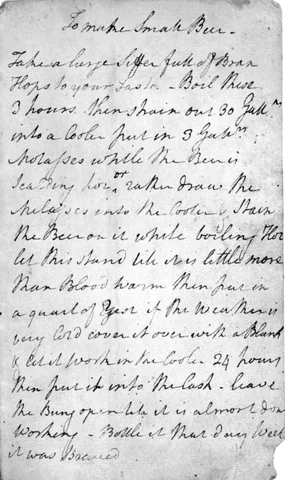 To make Small Beer -
Take a large Siffer full of Bran
Hops to your Taste. - Boil these
3 hours. then strain out 30 Gallns
into a Cooler put in 3 Gallns
Molasses while the Beer is
Scalding hot or rather draw the
Melasses into the Cooler & Strain
the Beer on it while boiling Hot
let this stand till it is little more
than Blood warm then put in
a quart of Yest if the Weather is
very Cold cover it over with a Blank
& let it work in the Cooler 24 hours
then put it into the Cask - leave
the Bung open till it is almost don
Working - Bottle it that day Week
it was Brewed